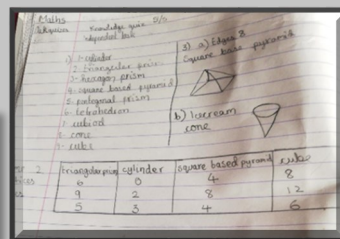 Maths
Knowledge quiz 0/5
independent task
1) 1- cylinder
2- triangular prism
3- hexagon prism
4- square based pyramid
5- pentagonal prism
6- tetrahedron
7- cuboid
8- cone
9- cube
3) a) Edges 8
Square base pyramid
b) Icecream
cone
triangular prism cylinder square based pyramid cube
6 0 4 8
9 2 8 12
5 3 4 6